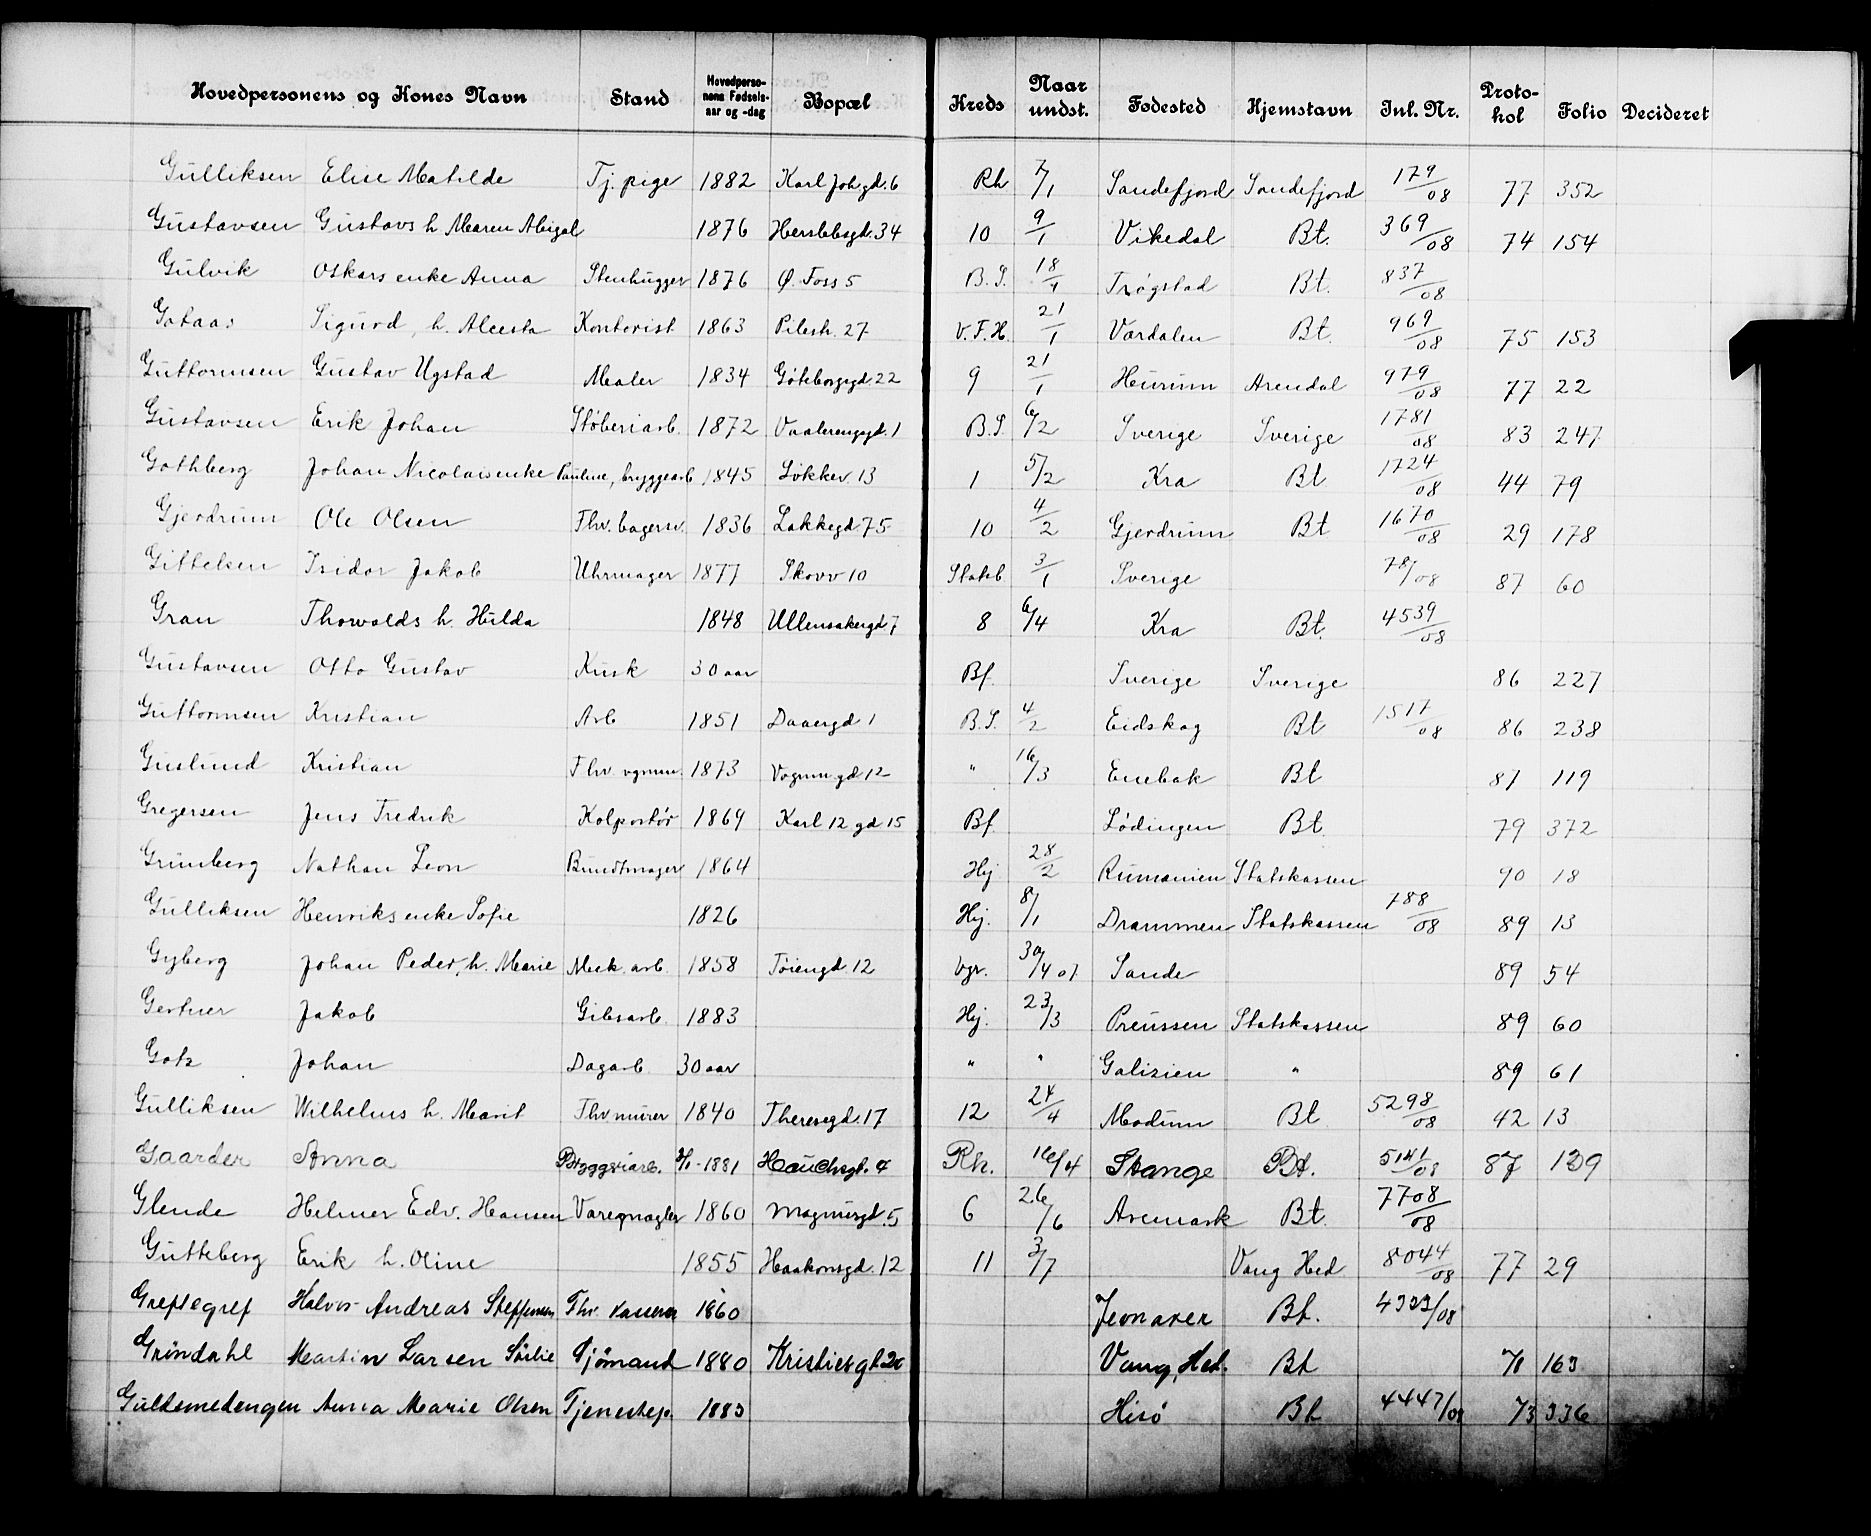 Hovedpersonens og Kones Navn Stand Hovedpersonens Fødselsaar og -dag Bopæl Kreds Naar undst. Fødested Hjemstavn Inl. Nr. Protokol Folio Decideret
Gulliksen Elise Matilde Tj. pige 1882 Karl Joh.gd. 6 Rh 7/1 Sandefjord Sandefjord 179/08 77 352
Gustavsen Gustavs h. Maren Abigal 1876 Herslebsgd. 34 10 9/1 Vikedal Bt. 369/08 74 154
Gulvik Oskars enke Anna Stenhugger 1876 Ø. Foss 5 B.S. 18/1 Trøgstad Bt. 837/08
Gotaas Sigurd, h. Aleesta Kontorist 1863 Pilestr. 27 V.F.H. 21/1 Værdalen Bt. 969/08 75 153
Guttormsen Gustav Ugstad Maler 1834 Göteborggd. 22 9 21/1 Hurum Arendal 979/08 77 22
Gustavsen Erik Johan Støberiarb. 1872 Vaalerenggd. 1 B.S. 6/2 Sverige Sverige 1781/08 83 247
Gothberg Johan Nicolais enke Pauline, bryggearb 1845 Løkkev. 13 1 5/2 Kra Bt 1724/08 44 79
Gjerdrum Ole Olsen Fhv. bagersv. 1836 Lakkegd 75 10 4/2 Gjerdrum Bt 1670/08 29 178
Gittelsen Isidor Jakob Uhrmager 1877 Skovv 10 Statsb 3/1 Sverige 78/08 87 60
Gran Thorvalds h. Hilda 1848 Ullensakergd 7 8 6/4 Kra Bt. 4539/08
Gustavsen Otto Gustav Kusk 30 aar Bf. Sverige Sverige 86 227
Guttormsen Kristian Arb 1851 Daaergd 1 B.S. 4/2 Eidskog Bt 1517/08 86 238
Guslund Kristian Fhv. vgnm. 1873 Vognm gd 12 " 16/3 Enebak Bt 87 119
Gregersen Jens Fredrik Kolportør 1869 Karl 12 gd 15 Bf. Lødingen Bt. 79 372
Grünberg Nathan Leon Bundtmager 1864 Hj 28/2 Rumænien Statskassen 90 18
Gulliksen Henriks enke Sofie 1826 Hj. 8/1 Drammen Statskassen 788/08 89 13
Gyberg Johan Peder, h. Marie Mek. arb. 1858 Tøiengd. 12 Vgr. 30/4 07 Sande 89 54
Gertner Jakob Gibsarb. 1883 Hj. 23/3 Preussen Statskassen 89 60
Gotz Johan Dagarb. 30 aar " " Galizien " 89 61
Gulliksen Wilhelms h. Marit Fhv murer 1840 Theresegd. 17 12 24/4 Modum Bt 5298/08 42 13
Gaarder Anna Bryggeriarb. 1881 Hauchsgt. 4 Rh. 16/4 Stange Bt. 5141/08 87 139
Glende Helmer Edv. Hansen Varemægler 1860 Magnusgd. 5 6 26/6 Aremark Bt. 7708/08
Gutteberg Erik h. Oline 1855 Haakonsgd. 12 11 3/7 Vang Hed 8044/08 77 29
Greftegref Halvor Andreas Steffensen Fhv. kasserer 1860 Jevnaker Bt. 4323/08
Grøndahl Martin Larsen Sørlie Sjømand 1880 Kristiesgt 20 Vang, Hed. Bt 71 163
Guldsmedengen Anna Marie Olsen Tjenestep. 1883 Hisø Bt 4447/08 73 336